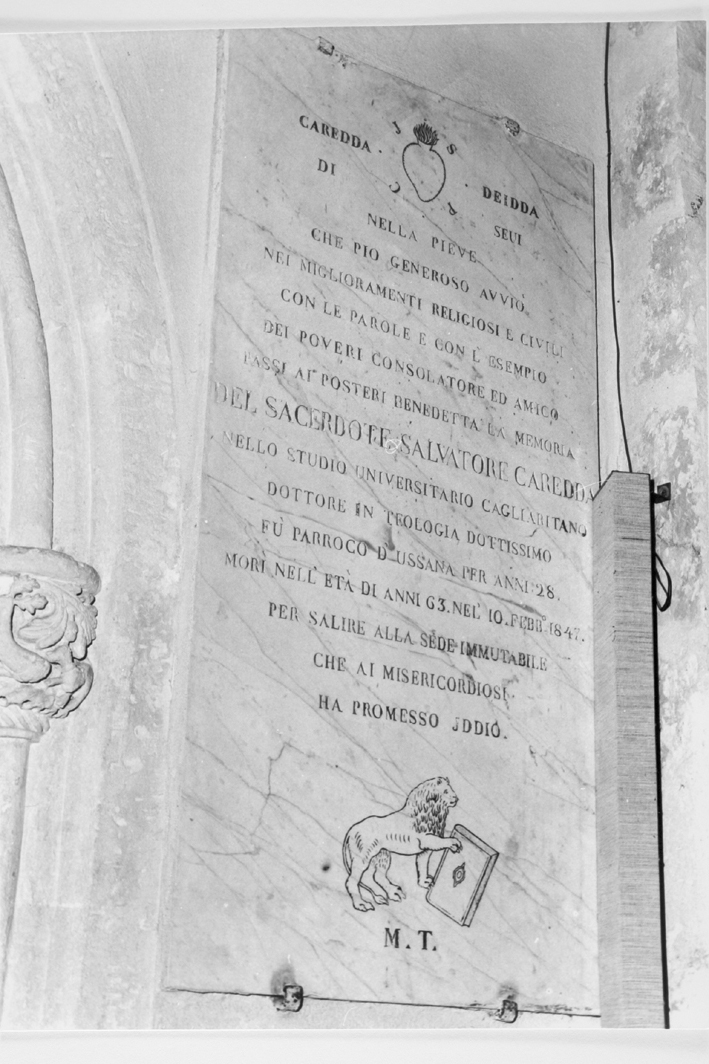 J S
CAREDDA · · DEIDDA
DI C A SEUI
NELLA PIEVE
CHE PIO GENEROSO AVVIÒ
NEI MIGLIORAMENTI RELIGIOSI E CIVILI
CON LE PAROLE E CON L' ESEMPIO
DEI POVERI CONSOLATORE ED AMICO
FASSI AI POSTERI BENEDETTA LA MEMORIA
DEL SACERDOTE SALVATORE CAREDDA
NELLO STUDIO UNIVERSITARIO CAGLIARITANO
DOTTORE IN TEOLOGIA DOTTISSIMO
FÙ PARROCO D' USSANA PER ANNI 28.
MORÌ NELL' ETÀ DI ANNI 63. NEL 10. FEBB. 1847.
PER SALIRE ALLA SEDE IMMUTABILE
CHE AI MISERICORDIOSI
HA PROMESSO JDDIO.
M. T.